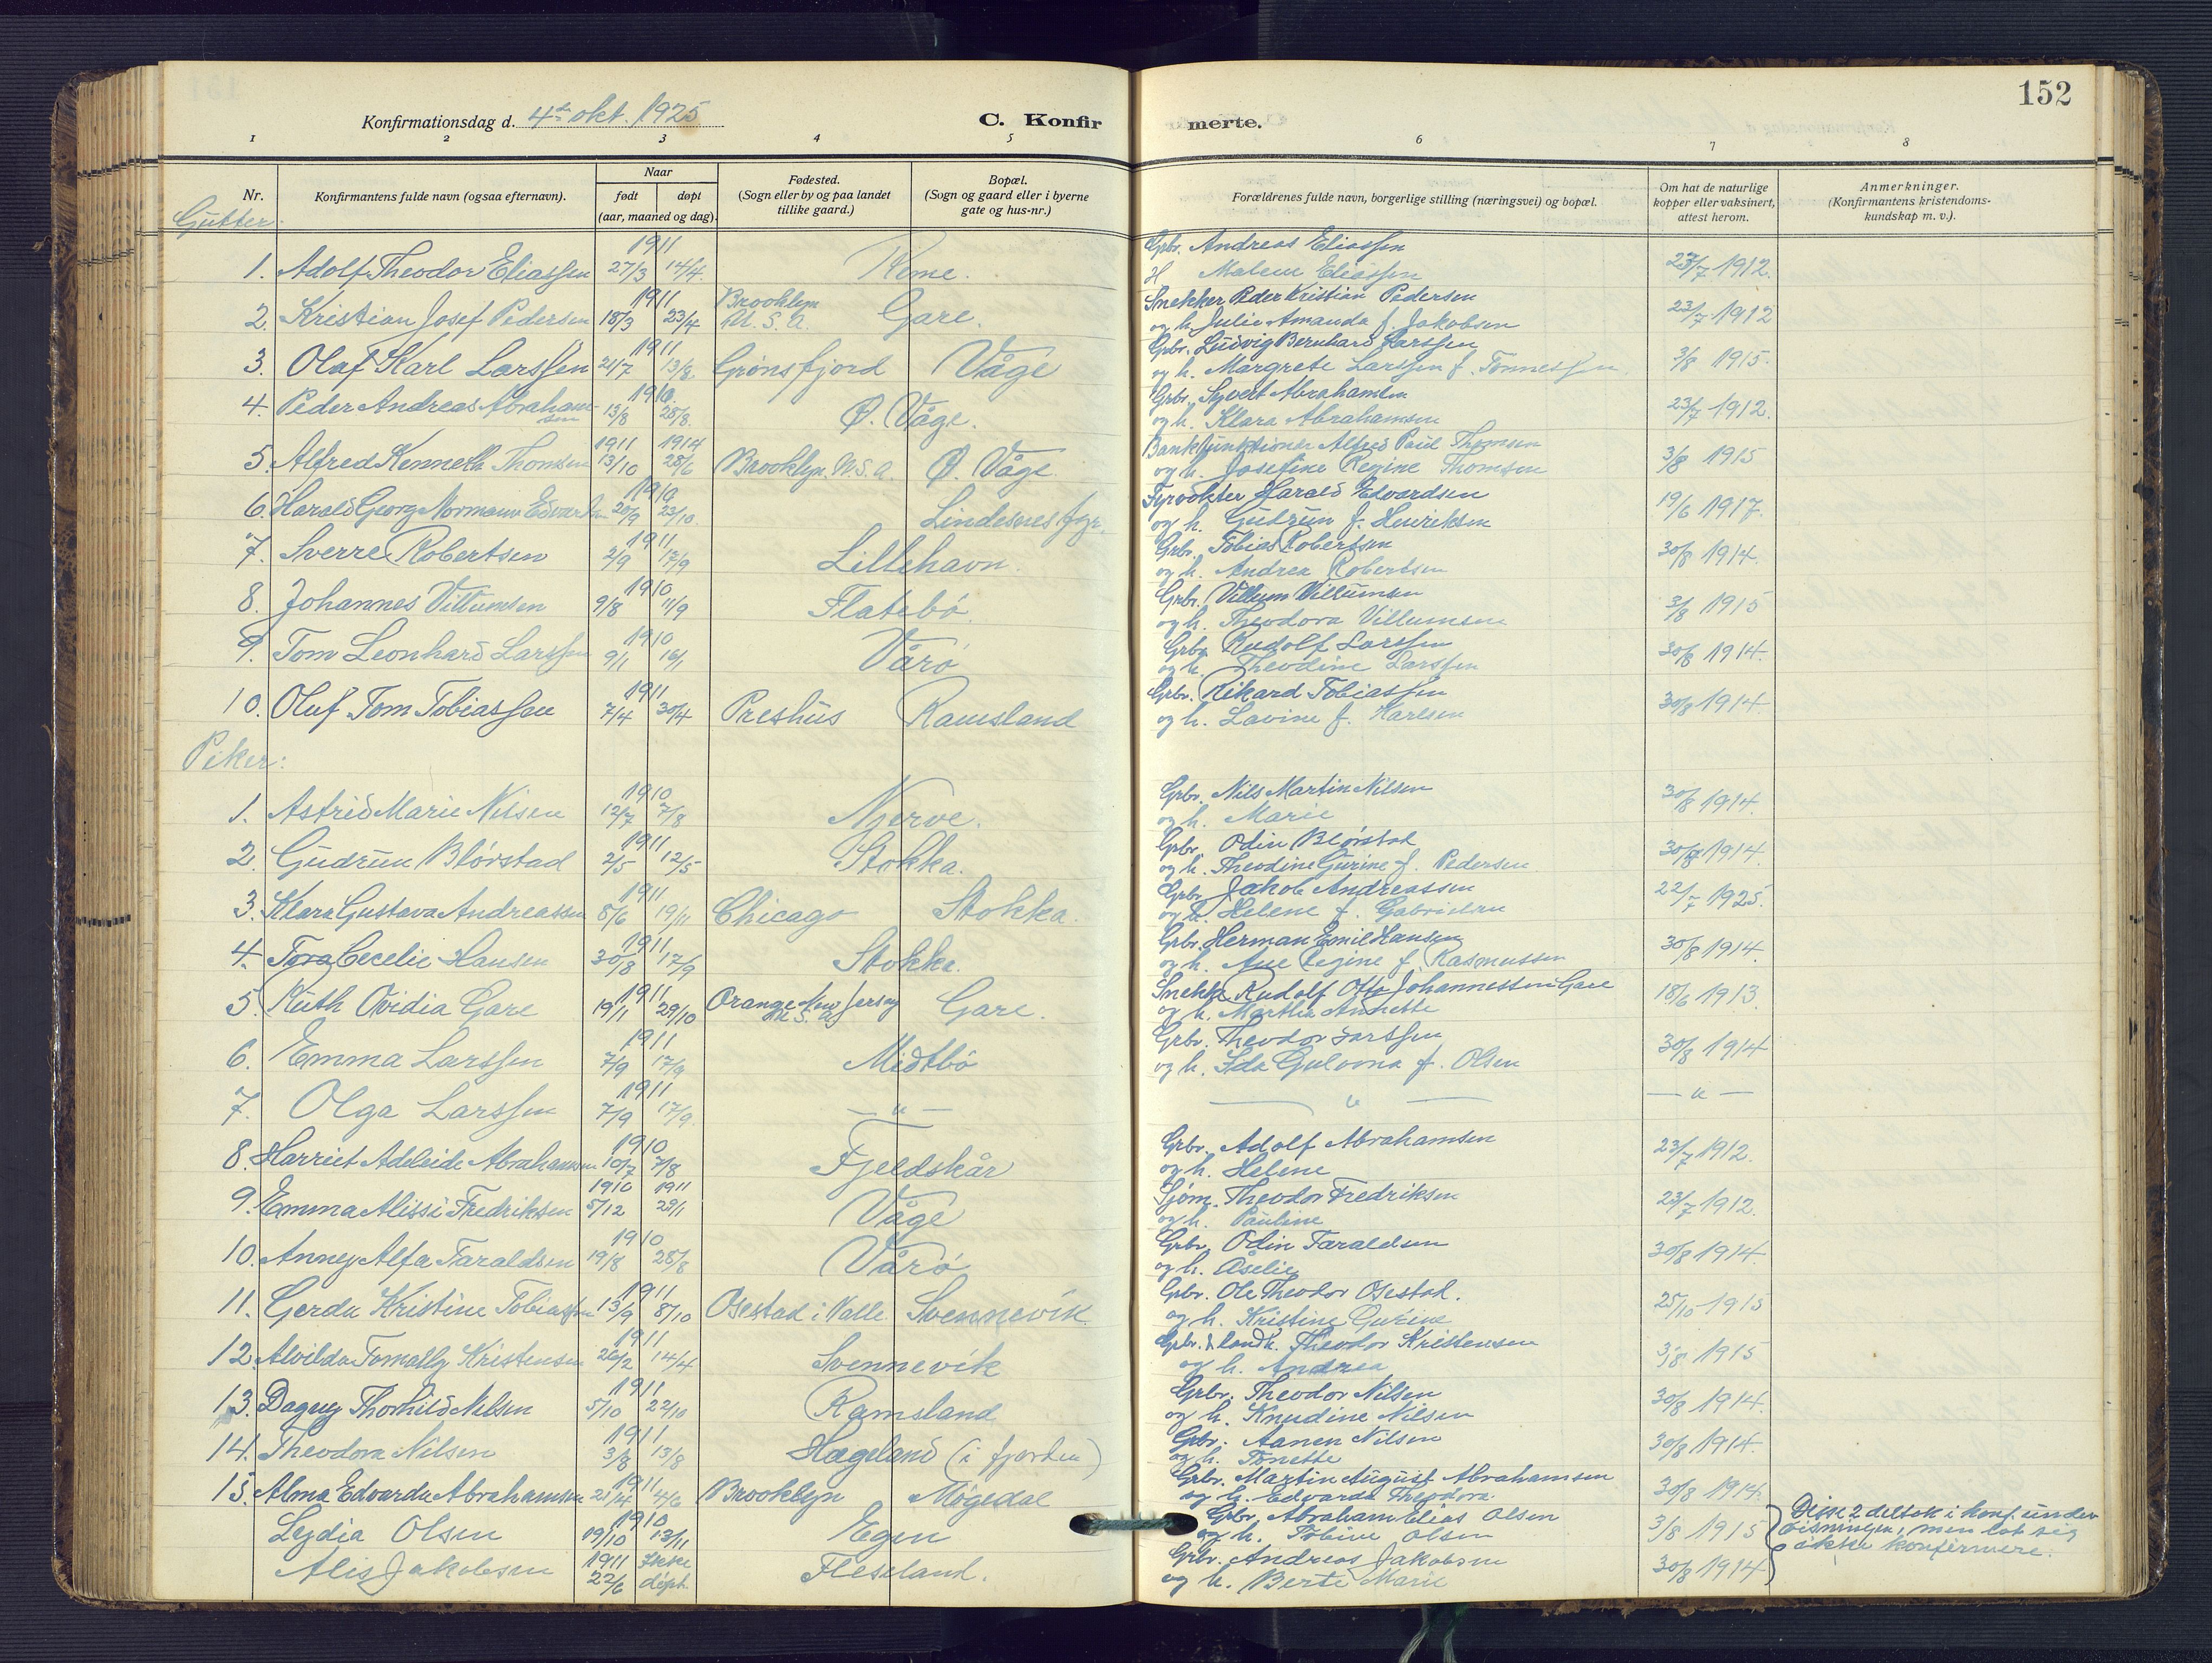 152
Konfirmationsdag d. 4de okt. 1925
C. Konfirmerte.
1 2 3 4 5 6 7 8
Nr.
Konfirmantens fulde navn (ogsaa efternavn).
Naar
født
døpt
(aar, maaned og dag).
Fødested.
(Sogn eller by og paa landet
tillike gaard.)
Bopæl.
(Sogn og gaard eller i byerne
gate og hus-nr.)
Forældrenes fulde navn, borgerlige stilling (næringsvei) og bopæl.
Om hat de naturlige
kopper eller vaksinert,
attest herom.
Anmerkninger.
(Konfirmantens kristendoms-
kundskap m. v.).
Gutter:
1911 Grbr. Andreas Eliassen
1. Adolf Theodor Eliassen 27/3 14/4 H Malene Eliassen 23/7 1912.
1911 Brooklyn Snekker Peder Kristian Pedersen
2. Kristian Josef Pedersen 18/3 23/4 U.S.A. Gare. og h. Julie Amanda f. Jakobsen 23/7 1912
1911 Grbr. Ludvig Bernhard Larssen
3. Olaf Karl Larssen 21/7 13/8 Grønsfjord Våge og h. Margrete Larssen f. Tønnessen. 3/8 1915.
1910. Grbr. Syvert Abrahamsen
4. Peder Andreas Abrahamsen 13/8 28/8. Ø. Våge. og h. Klara Abrahamsen 23/7 1912.
1911 1914 Bankfunktionær Alfred Paul Thomsen
5. Alfred Kenneth Thomsen 13/10 28/6 Brooklyn. U.S.A. Ø. Våge og h. Josefine Regine Thomsen 3/8 1915
1910 Fyrvokter Harald Edvardsen
6. Harald Georg Normann Edvardsen 20/9 23/10. Lindesnes fyr. og h. Gudrun f. Henriksen 19/6 1917.
1911 Grbr. Tobias Robertsen
7. Sverre Robertsen 2/9 17/9 Lillehavn. og h. Andrea Robertsen 30/8 1914.
1910 Grbr. Villum Villumsen
8. Johannes Villumsen 9/8 11/9 Flatebø. og h. Theodora Villumsen 3/8 1915
1910 Grbr. Rudolf Larssen
9. Tom Leonhard Larssen 9/1 16/1 Vårø og h. Theodine Larssen 30/8 1914.
1911 Grbr. Rikard Tobiassen
10. Oluf Tom Tobiassen 7/4 30/4 Preshus Ramsland og h. Lavine f. Karlsen 30/8 1914.
Piker:
1910 Grbr. Nils Martin Nilsen
1. Astrid Marie Nilsen 12/7 7/8 Njerve. og h. Marie 30/8 1914.
1911 Grbr. Odin Blørstad
2. Gudrun Blørstad 2/5 12/5 Stokka. og h. Theodine Gurine f. Pedersen 30/8 1914.
1911 Grbr. Jakob Andreassen
3. Klara Gustava Andreassen 8/6 19/11 Chicago Stokka. og h. Helene f. Gabrielsen 22/7 1925.
1911 Grbr. Herman Emil Hansen
4. Tora Cecelie Hansen 30/8 17/9 Stokka. og h. Ane Regine f. Rasmussen 30/8 1914
1911 Orange New Jersey Snekk. Rudolf Otto Johannessen Gare
5. Ruth Ovidia Gare 19/1 29/10 U.S.A. Gare. og h. Martha Annette 18/6 1913
1911 Grbr. Theodor Larssen
6. Emma Larssen 7/9 17/9 Midtbø og h. Ida Gulovna f. Olsen 30/8 1914
1911
7. Olga Larssen 7/9 17/9 — " — — " — — " —
1910 Grbr. Adolf Abrahamsen
8. Harriet Adeleide Abrahamsen 10/7 7/8 Fjeldskår og h. Helene 23/7 1912.
1910 1911 Sjøm. Theodor Fredriksen
9. Emma Alissi Fredriksen 5/12 29/1 Våge og h. Pauline 23/7 1912.
1910 Grbr. Odin Taraldsen
10. Anney Alfa Taraldsen 19/8 28/8 Vårø og h. Åselie 30/8 1914.
1911 Grbr. Ole Theodor Osestad.
11. Gerda Kristine Tobiassen 13/9 8/10 Osestad i Valle Svennevik og h. Kristine Gurine 25/10 1915
1911 Grbr. & landh. Theodor Kristensen
12. Alvilda Tomally Kristensen 26/2 14/4 Svennevik og h. Andrea 3/8 1915
1911 Grbr. Theodor Nilsen
13. Dagny Thorhild Nilsen 5/10 22/10 Ramsland og h. Knudine Nilsen 30/8 1914.
1911 Grbr. Aanen Nilsen
14. Theodora Nilsen 3/8 13/8 Hageland (i fjorden) og h. Tonette 30/8 1914.
1911 Grbr. Martin August Abrahamsen
15. Alma Edvarda Abrahamsen 21/4 4/6 Brooklyn Møgedal og h. Edvarda Theodora. 30/8 1914.
1910 Grbr. Abraham Elias Olsen
Lydia Olsen 19/10 13/11 Egen og h. Tobine Olsen 3/8 1915
1911 Ikke Grbr. Andreas Jakobsen
Alis Jakobsen 22/6 døpt. Fleseland. og h. Berte Marie 30/8 1914
Disse 2 deltok i konf.under
visningen, men lot sig
ikke konfirmere.